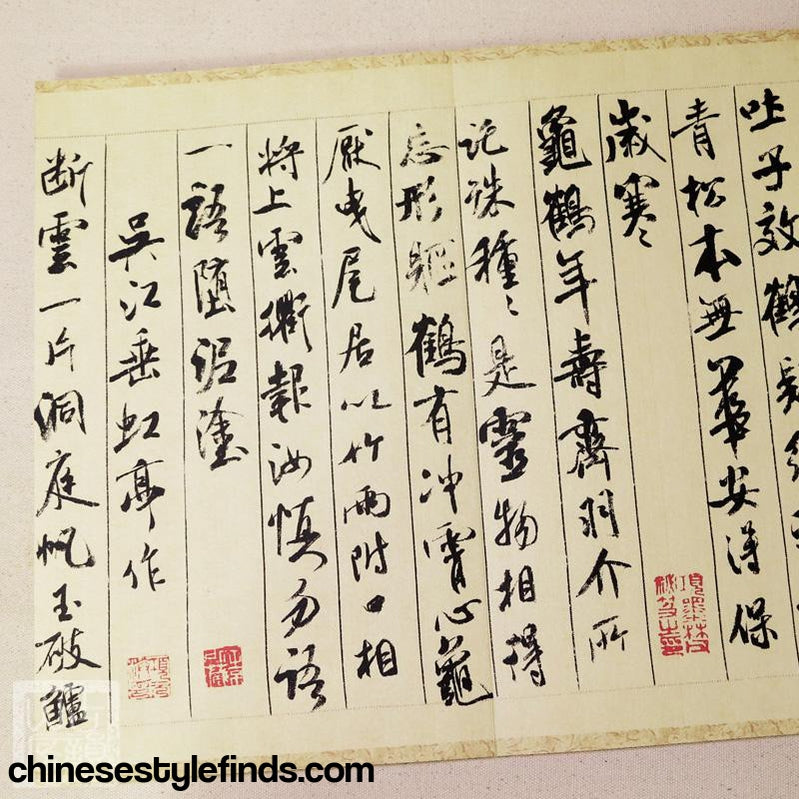 吐子效鶴疑
青松本無華安得保
歲寒
龜鶴年壽齊羽介所
託殊種〻是靈物相得
忘形軀鶴有冲霄心龜
厭曳尾居以竹兩附口相
將上雲衢報汝慎勿語
一語墮泥塗
吳江垂虹亭作
断雲一片洞庭帆玉破鱸
項墨林父祕笈之印
chinesestylefinds.com